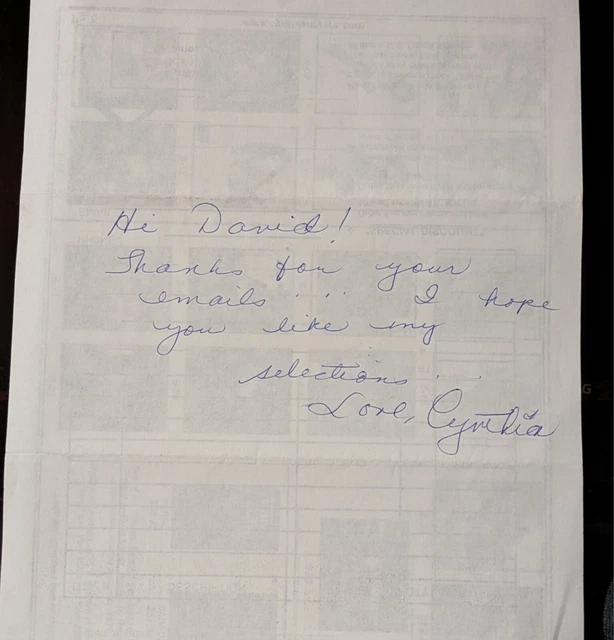 Hi David!
Thanks for your
emails ... I hope
you like my
selections...
Love, Cynthia